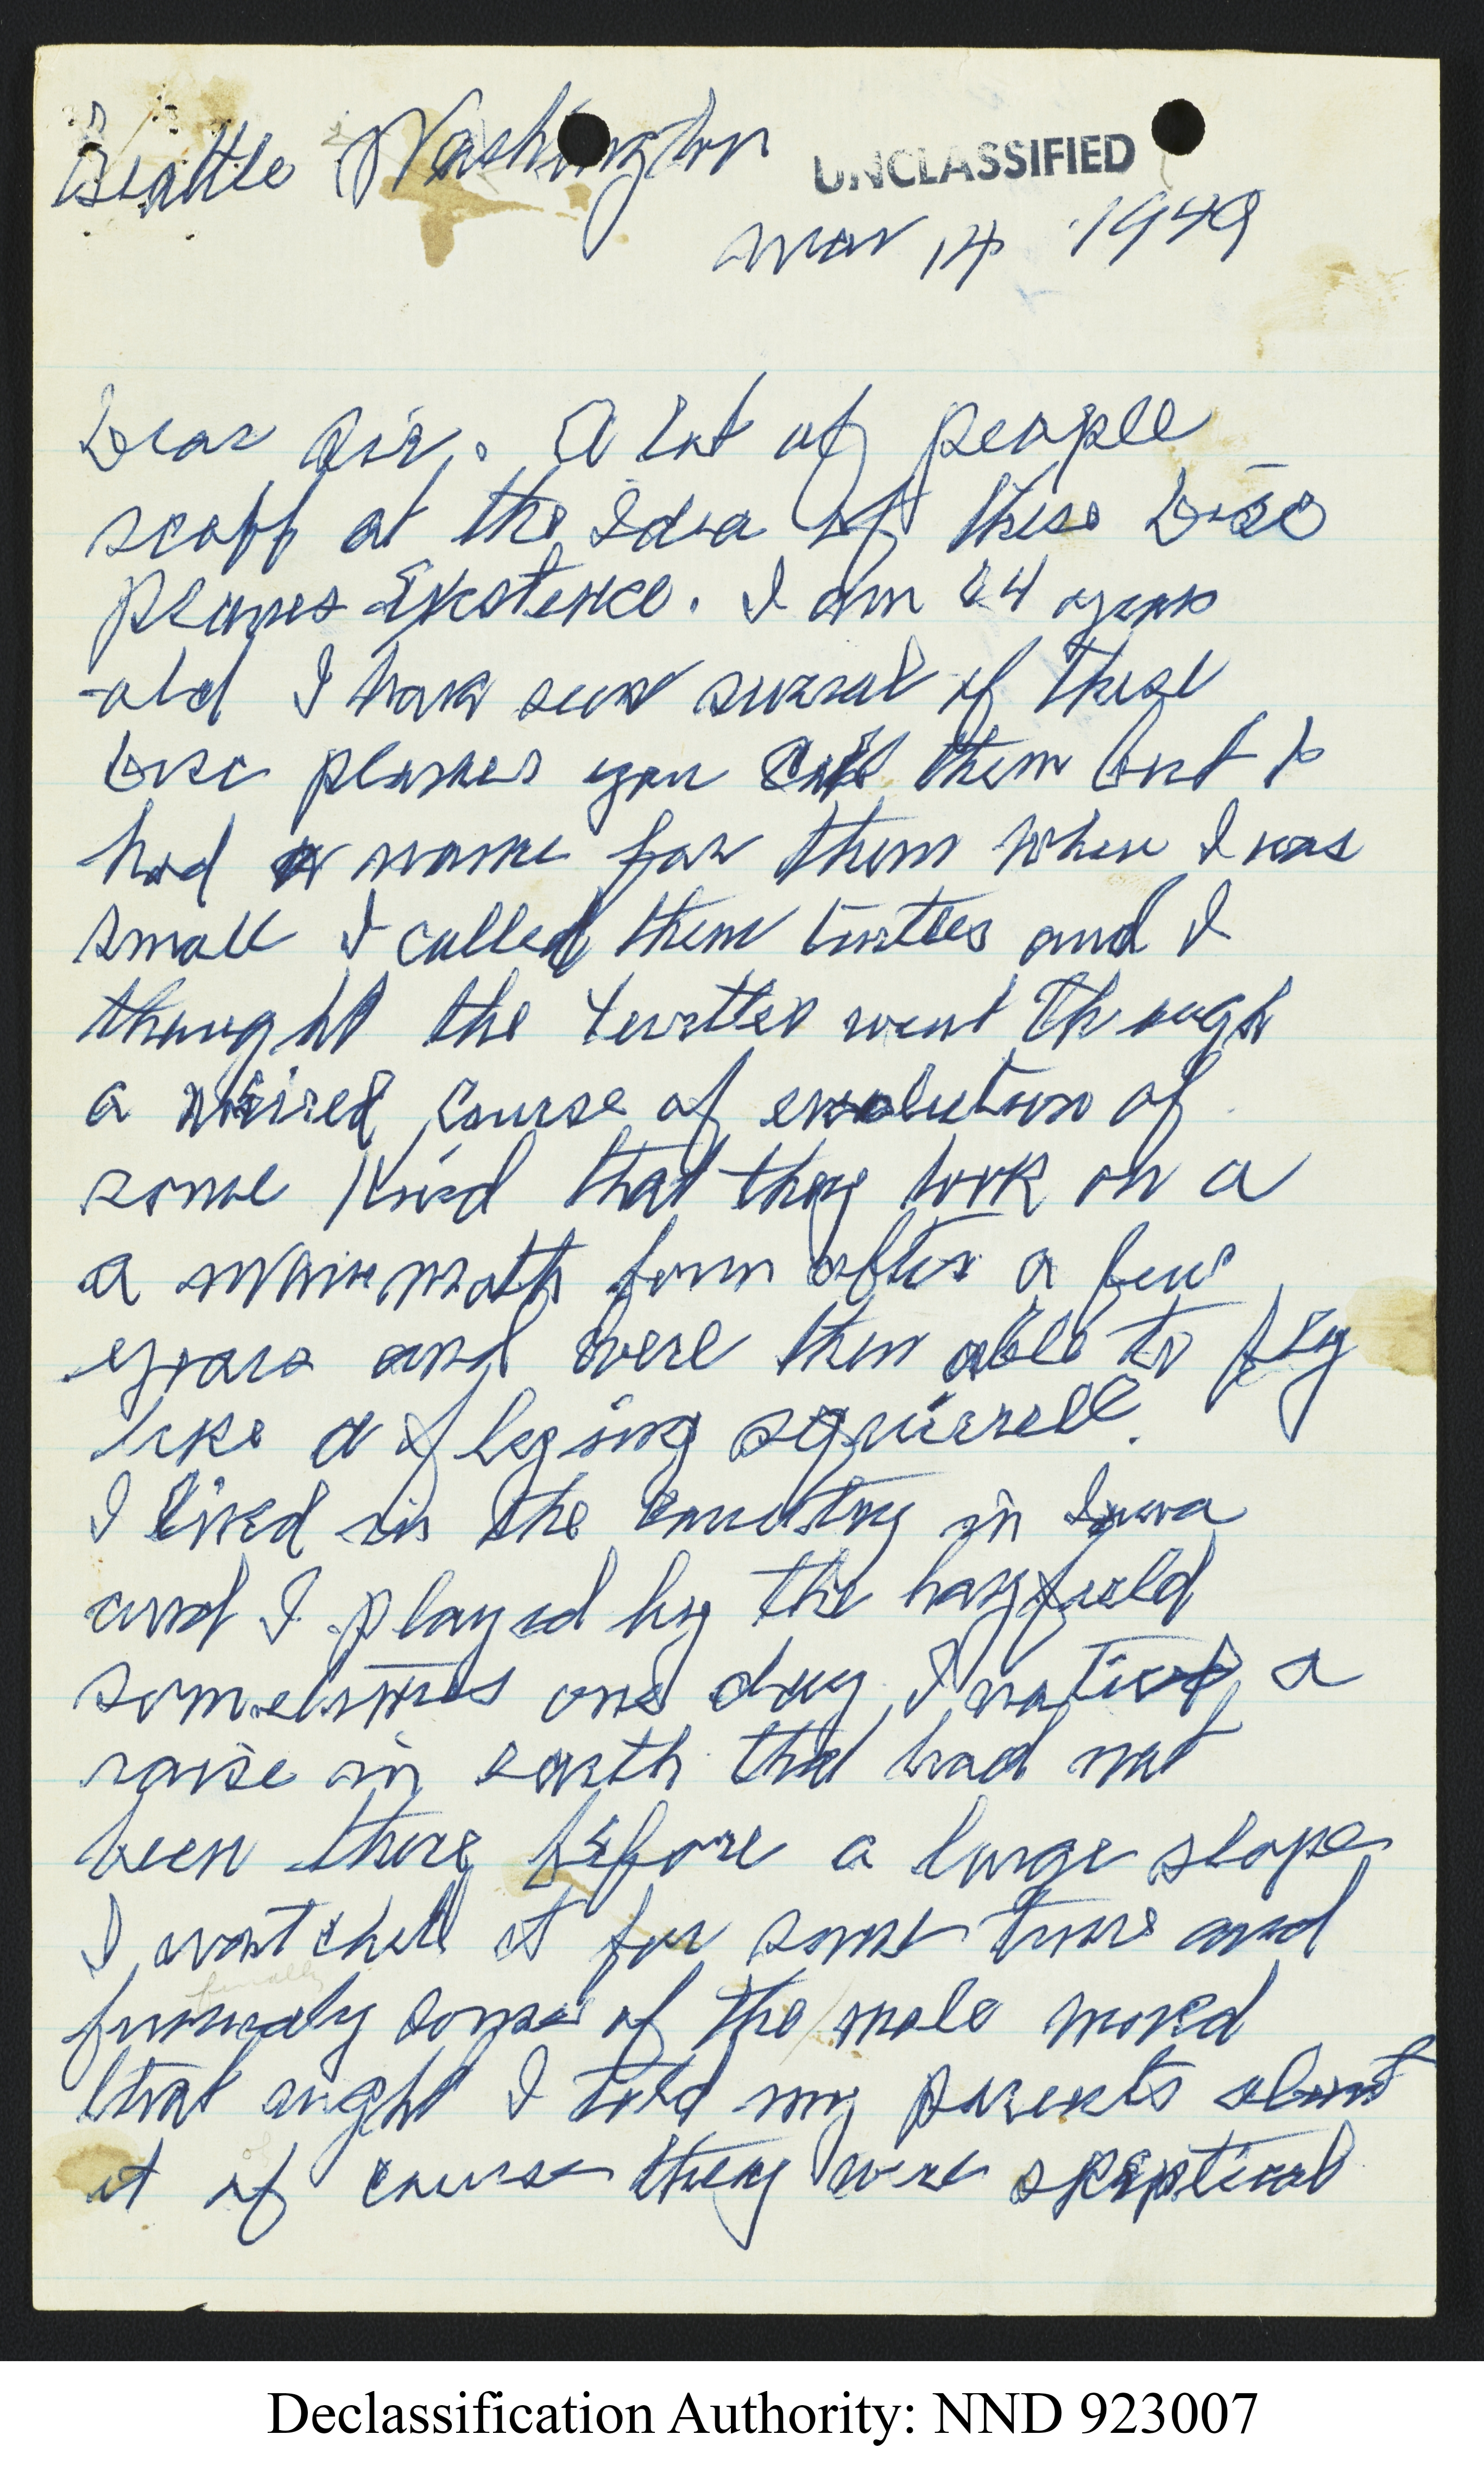 Seattle Washington
UNCLASSIFIED
Mar 14 1949
Dear Sir. A lot of people
scoff at the Idea of these Disc
planes Existence. I am 24 years
old I have seen several of these
Disc planes you call them but I
had a name for them when I was
small I called them turtles and I
thought the turtles went through
a course of evolution of
some kind that they took on a
a mammoth form after a few
years and were then able to fly
like a flying squirrell.
I lived in the country in Iowa
and I played by the hayfield
sometimes one day I noticed a
raise in earth that had not
been there before a large slope
I watched it for some time and
finally
some of the mole moved
that night I told my parents about
of
it of course they were skeptical
Declassification Authority: NND 923007